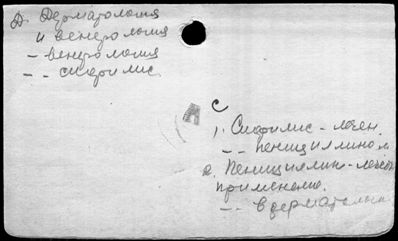 Д. Дерматология
и венерология
- венерология
- - сифилис
С
1. Сифилис - лечен.
- - пенициллином
2. Пенициллин - лечебн.
применение.
- - в дерматологии